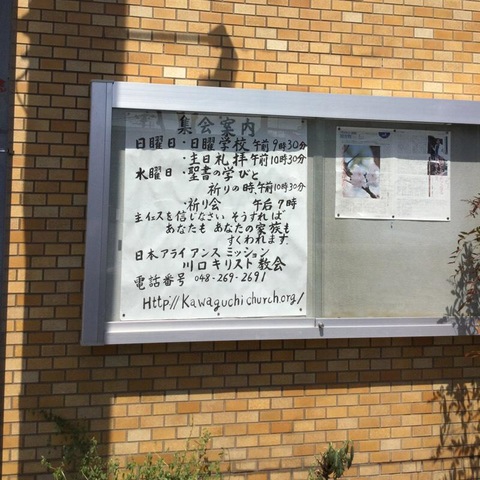 集会案内
日曜日・日曜学校 午前9時30分
・主日礼拝 午前10時30分
水曜日・聖書の学びと
祈りの時 午前10時30分
・祈り会 午后7時
主イエスを信じなさい そうすれば
あなたも あなたの家族も
すくわれます
日本アライアンス ミッション
川口キリスト教会
電話番号 048-269-2691
Http://Kawaguchichurch.org/